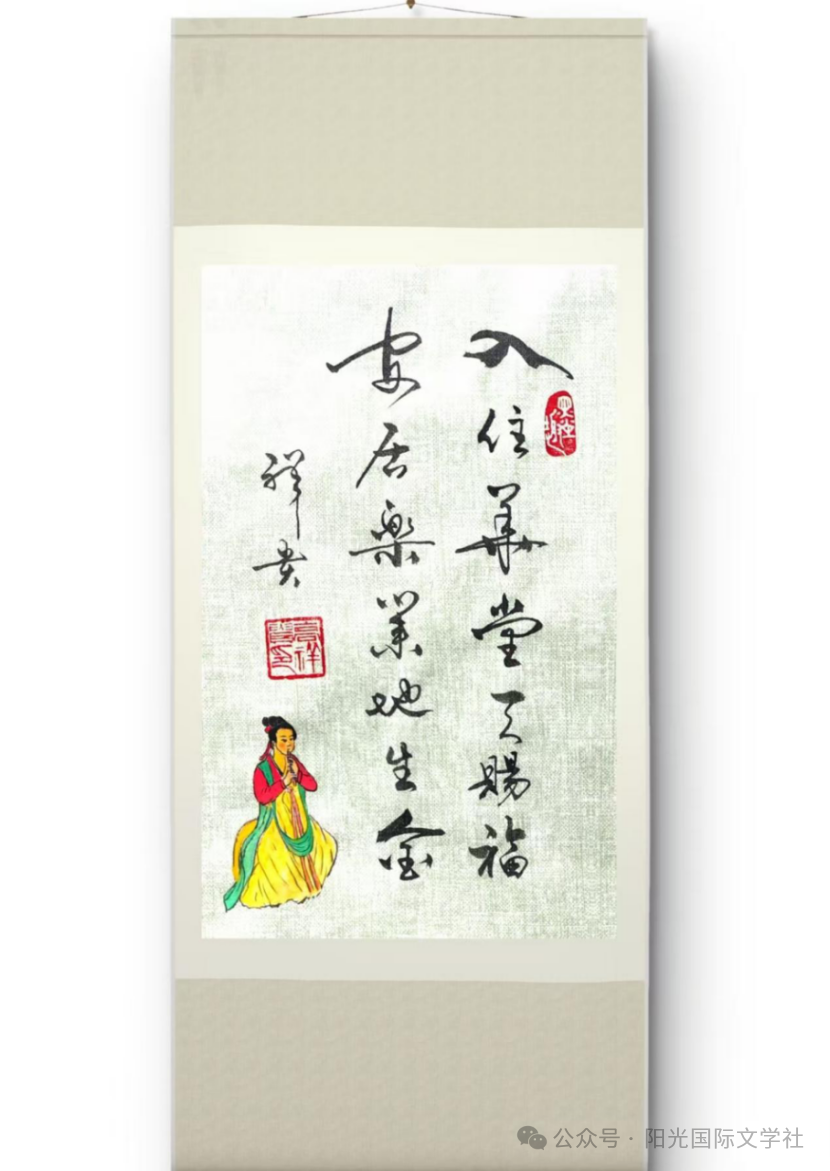 入住華堂天賜福
安居樂業地生金
祥贵
公众号 · 阳光国际文学社